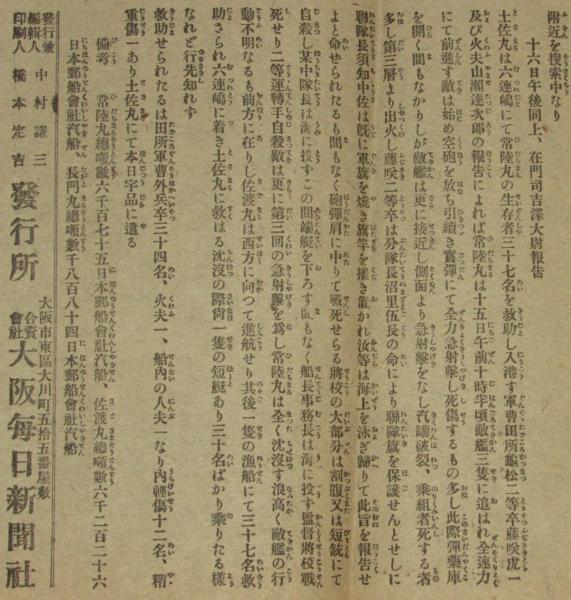 附近を搜索中なり
十六日午後同上、在門司吉澤大尉報告
土佐丸は六連嶋にて常陸丸の生存者三十七名を救助し入港す軍曹田所龜松二等卒藤咲虎一
及び火夫山瀨達次郎の報告によれば常陸丸は十五日午前十時半頃敵艦三隻に追はれ全速力
にて前進す敵は始め空砲を放ち引續き實彈にて全力急射擊し死傷するもの多し此際彈藥庫
を開く間もなかりしが敵艦は更に接近し側面より急射擊をなし汽罐破裂、乘組者死する者
多し第三層より出火し藤咲二等卒は分隊長沼里伍長の命により聯隊旗を保護せんとせしに
聯隊長須知中佐は旣に軍旗を燒き旗竿を摧き歐かれ汝等は海上を泳ぎ歸りて此旨を報告せ
よと命せられたるも間もなく砲彈肩に中りて戰死せらる將校の大部分は割腹又は短銃にて
自殺し某中隊長は海に投すこの間端艇を下ろす隙もなく船長事務長は海に投す監督將校戰
死せり二等運轉手自殺敵は更に第三回の急射擊を爲し常陸丸は全く沈沒す浪高く敵艦の行
動不明なるも前方に在りし佐渡丸は西方に向つて進航せり其後一隻の漁船にて三十七名救
助され六連嶋に着き土佐丸に救はる沈沒の際尙一隻の短艇あり三十名ばかり乘りたる樣
なれど行先知れす
救助せられたるは田所軍曹外兵卒三十四名、火夫一、船內の人夫一なり內輕傷十二名、稍
重傷一あり土佐丸にて本日宇品に送る
備考 常陸丸總噸數六千百七十五日本郵船會社汽船、佐渡丸總噸數六千二百二十六
日本郵船會社汽船、長門丸總噸數千八百八十四日本郵船會社汽船
發行兼編輯人 中村謙三
印刷人 橋本定吉
發行所
大阪市東區大川町五拾五番屋敷
合資會社 大阪每日新聞社